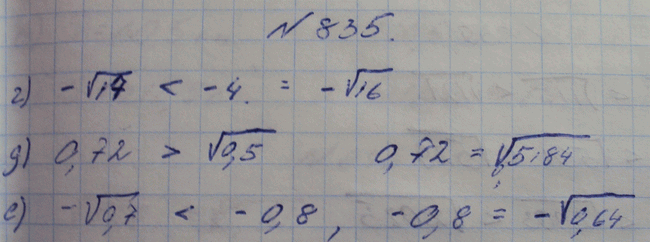 № 835.
г) -√17 < -4. = -√16
д) 0,72 > √0,5 0,72 = √0,5184
е) -√0,7 < -0,8, -0,8 = -√0,64